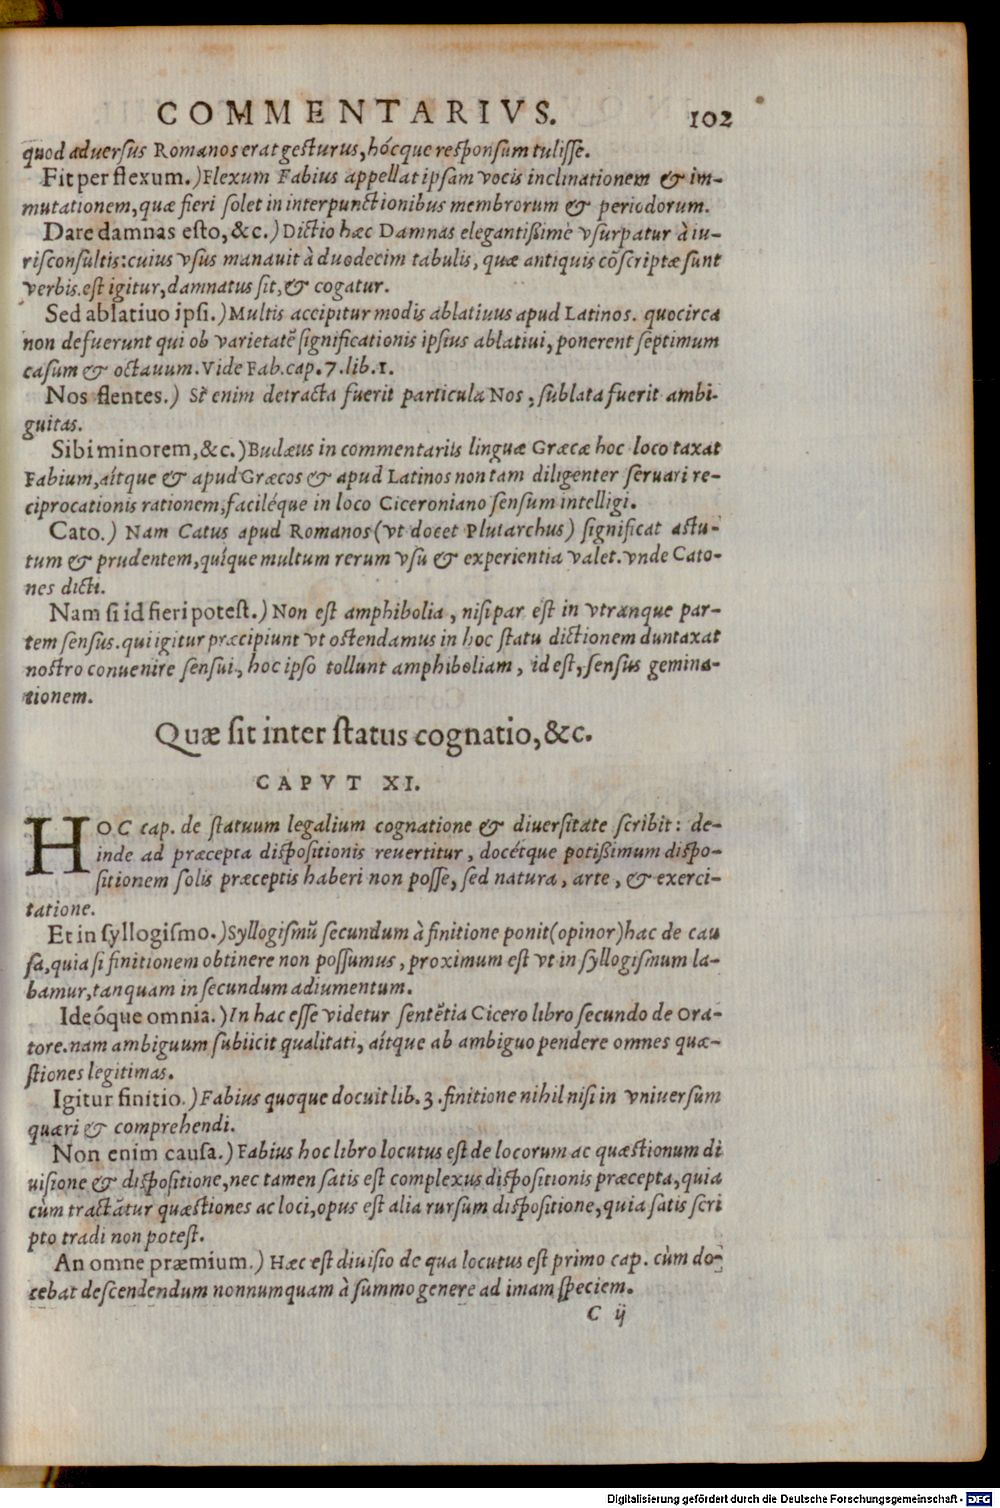 COMMENTARIVS. 102
quod aduersus Romanos erat gesturus, hócque responsum tulisse.
Fit per flexum.) Flexum Fabius appellat ipsam vocis inclinationem & im-
mutationem, quæ fieri solet in interpunctionibus membrorum & periodorum.
Dare damnas esto, &c.) Dictio hæc Damnas elegantißimè vsurpatur à iu-
risconsultis: cuius vsus manauit à duodecim tabulis, quæ antiquis cōscriptæ sunt
verbis. est igitur, damnatus sit, & cogatur.
Sed ablatiuo ipsi.) Multis accipitur modis ablatiuus apud Latinos. quocirca
non defuerunt qui ob varietatē significationis ipsius ablatiui, ponerent septimum
casum & octauum. Vide Fab. cap. 7. lib. 1.
Nos flentes.) Si enim detracta fuerit particula Nos, sublata fuerit ambi-
guitas.
Sibi minorem, &c.) Budæus in commentariis linguæ Græcæ hoc loco taxat
Fabium, aítque & apud Græcos & apud Latinos non tam diligenter seruari re-
ciprocationis rationem, faciléque in loco Ciceroniano sensum intelligi.
Cato.) Nam Catus apud Romanos (vt docet Plutarchus) significat astu-
tum & prudentem, quíque multum rerum vsu & experientia valet. vnde Cato-
nes dicti.
Nam si id fieri potest.) Non est amphibolia, nisi par est in vtranque par-
tem sensus. qui igitur præcipiunt vt ostendamus in hoc statu dictionem duntaxat
nostro conuenire sensui, hoc ipso tollunt amphiboliam, id est, sensus gemina-
tionem.
Quæ sit inter status cognatio, &c.
CAPVT XI.
HOC cap. de statuum legalium cognatione & diuersitate scribit: de-
inde ad præcepta dispositionis reuertitur, docétque potißimum dispo-
sitionem solis præceptis haberi non posse, sed natura, arte, & exerci-
tatione.
Et in syllogismo.) Syllogismū secundum à finitione ponit (opinor) hac de cau
sa, quia si finitionem obtinere non possumus, proximum est vt in syllogismum la-
bamur, tanquam in secundum adiumentum.
Ideóque omnia.) In hac esse videtur sentētia Cicero libro secundo de Ora-
tore. nam ambiguum subiicit qualitati, aítque ab ambiguo pendere omnes quæ-
stiones legitimas.
Igitur finitio.) Fabius quoque docuit lib. 3. finitione nihil nisi in vniuersum
quæri & comprehendi.
Non enim causa.) Fabius hoc libro locutus est de locorum ac quæstionum di
uisione & dispositione, nec tamen satis est complexus dispositionis præcepta, quia
cùm tractātur quæstiones ac loci, opus est alia rursum dispositione, quia satis scri
pto tradi non potest.
An omne præmium.) Hæc est diuisio de qua locutus est primo cap. cùm do-
cebat descendendum nonnumquam à summo genere ad imam speciem.
C ij
Digitalisierung gefördert durch die Deutsche Forschungsgemeinschaft - DFG